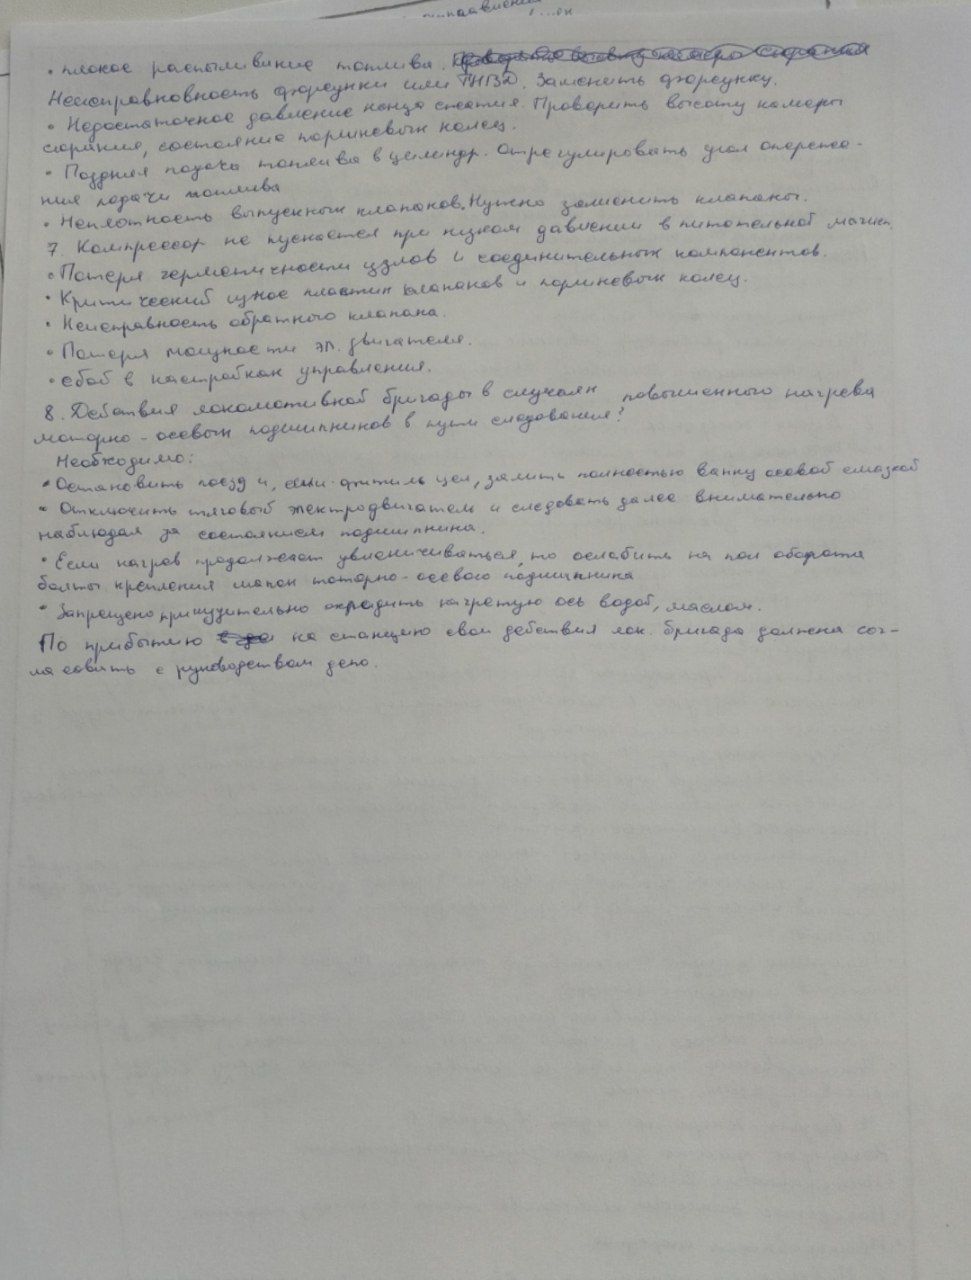 • плохое распыливание топлива.
Неисправновность форсунки или ТНВД. Заменить форсунку.
• Недостаточное давление конца сжатия. Проверить высоту камеры
сгорания, состояние поршневых колец.
• Поздняя подача топлива в цилендр. Отрегулировать угол опереже-
ния подачи топлива
• Неплотность выпускных клапанов. Нужно заменить клапаны.
7. Компрессор не пускается при низком давлении в питательной магист.
• Потеря герметичности узлов и соединительных компонентов.
• Критический износ пластин клапанов и поршневых колец.
• Неисправность обратного клапана.
• Потеря мощности эл. двигателя.
• сбой в настройках управления.
8. Действия локомотивной бригады в случаях повышенного нагрева
моторно-осевых подшипников в пути следования?
Необходимо:
• Остановить поезд и, если фитиль цел, залить полностью ванну осевой смазкой
• Отключить тяговый электродвигатель и следовать далее внимательно
наблюдая за состоянием подшипника.
• Если нагрев продолжает увеличиваться, то ослабить на пол оборота
болты крепления шапок моторно-осевого подшипника
• Запрещено принудительно охладить нагретую ось водой, маслом.
По прибытию на станцию свои действия лок. бригада должна сог-
ласовать с руководством депо.